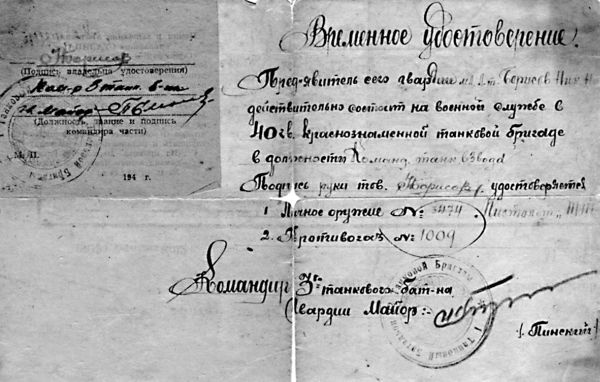 Борисов
(Подпись владельца удостоверения)
Ком-р 3 танк. б-на
гв. майор
(Должность, звание и подпись
командира части)
М. П.
194 г.
Временное удостоверение.
Пред'явитель сего гвардии мл. л-т. Борисов
действительно состоит на военной службе в
40 гв. Краснознаменной танковой бригаде
в должности Команд. танк взвода
Подпись руки тов. Борисов удостоверяется
1. Личное оружие № 3474 Пистолет „ТТ"
2. Противогаз № 1009
Командир 3го танкового бат-на
Гвардии Майор:-
(Пинский)